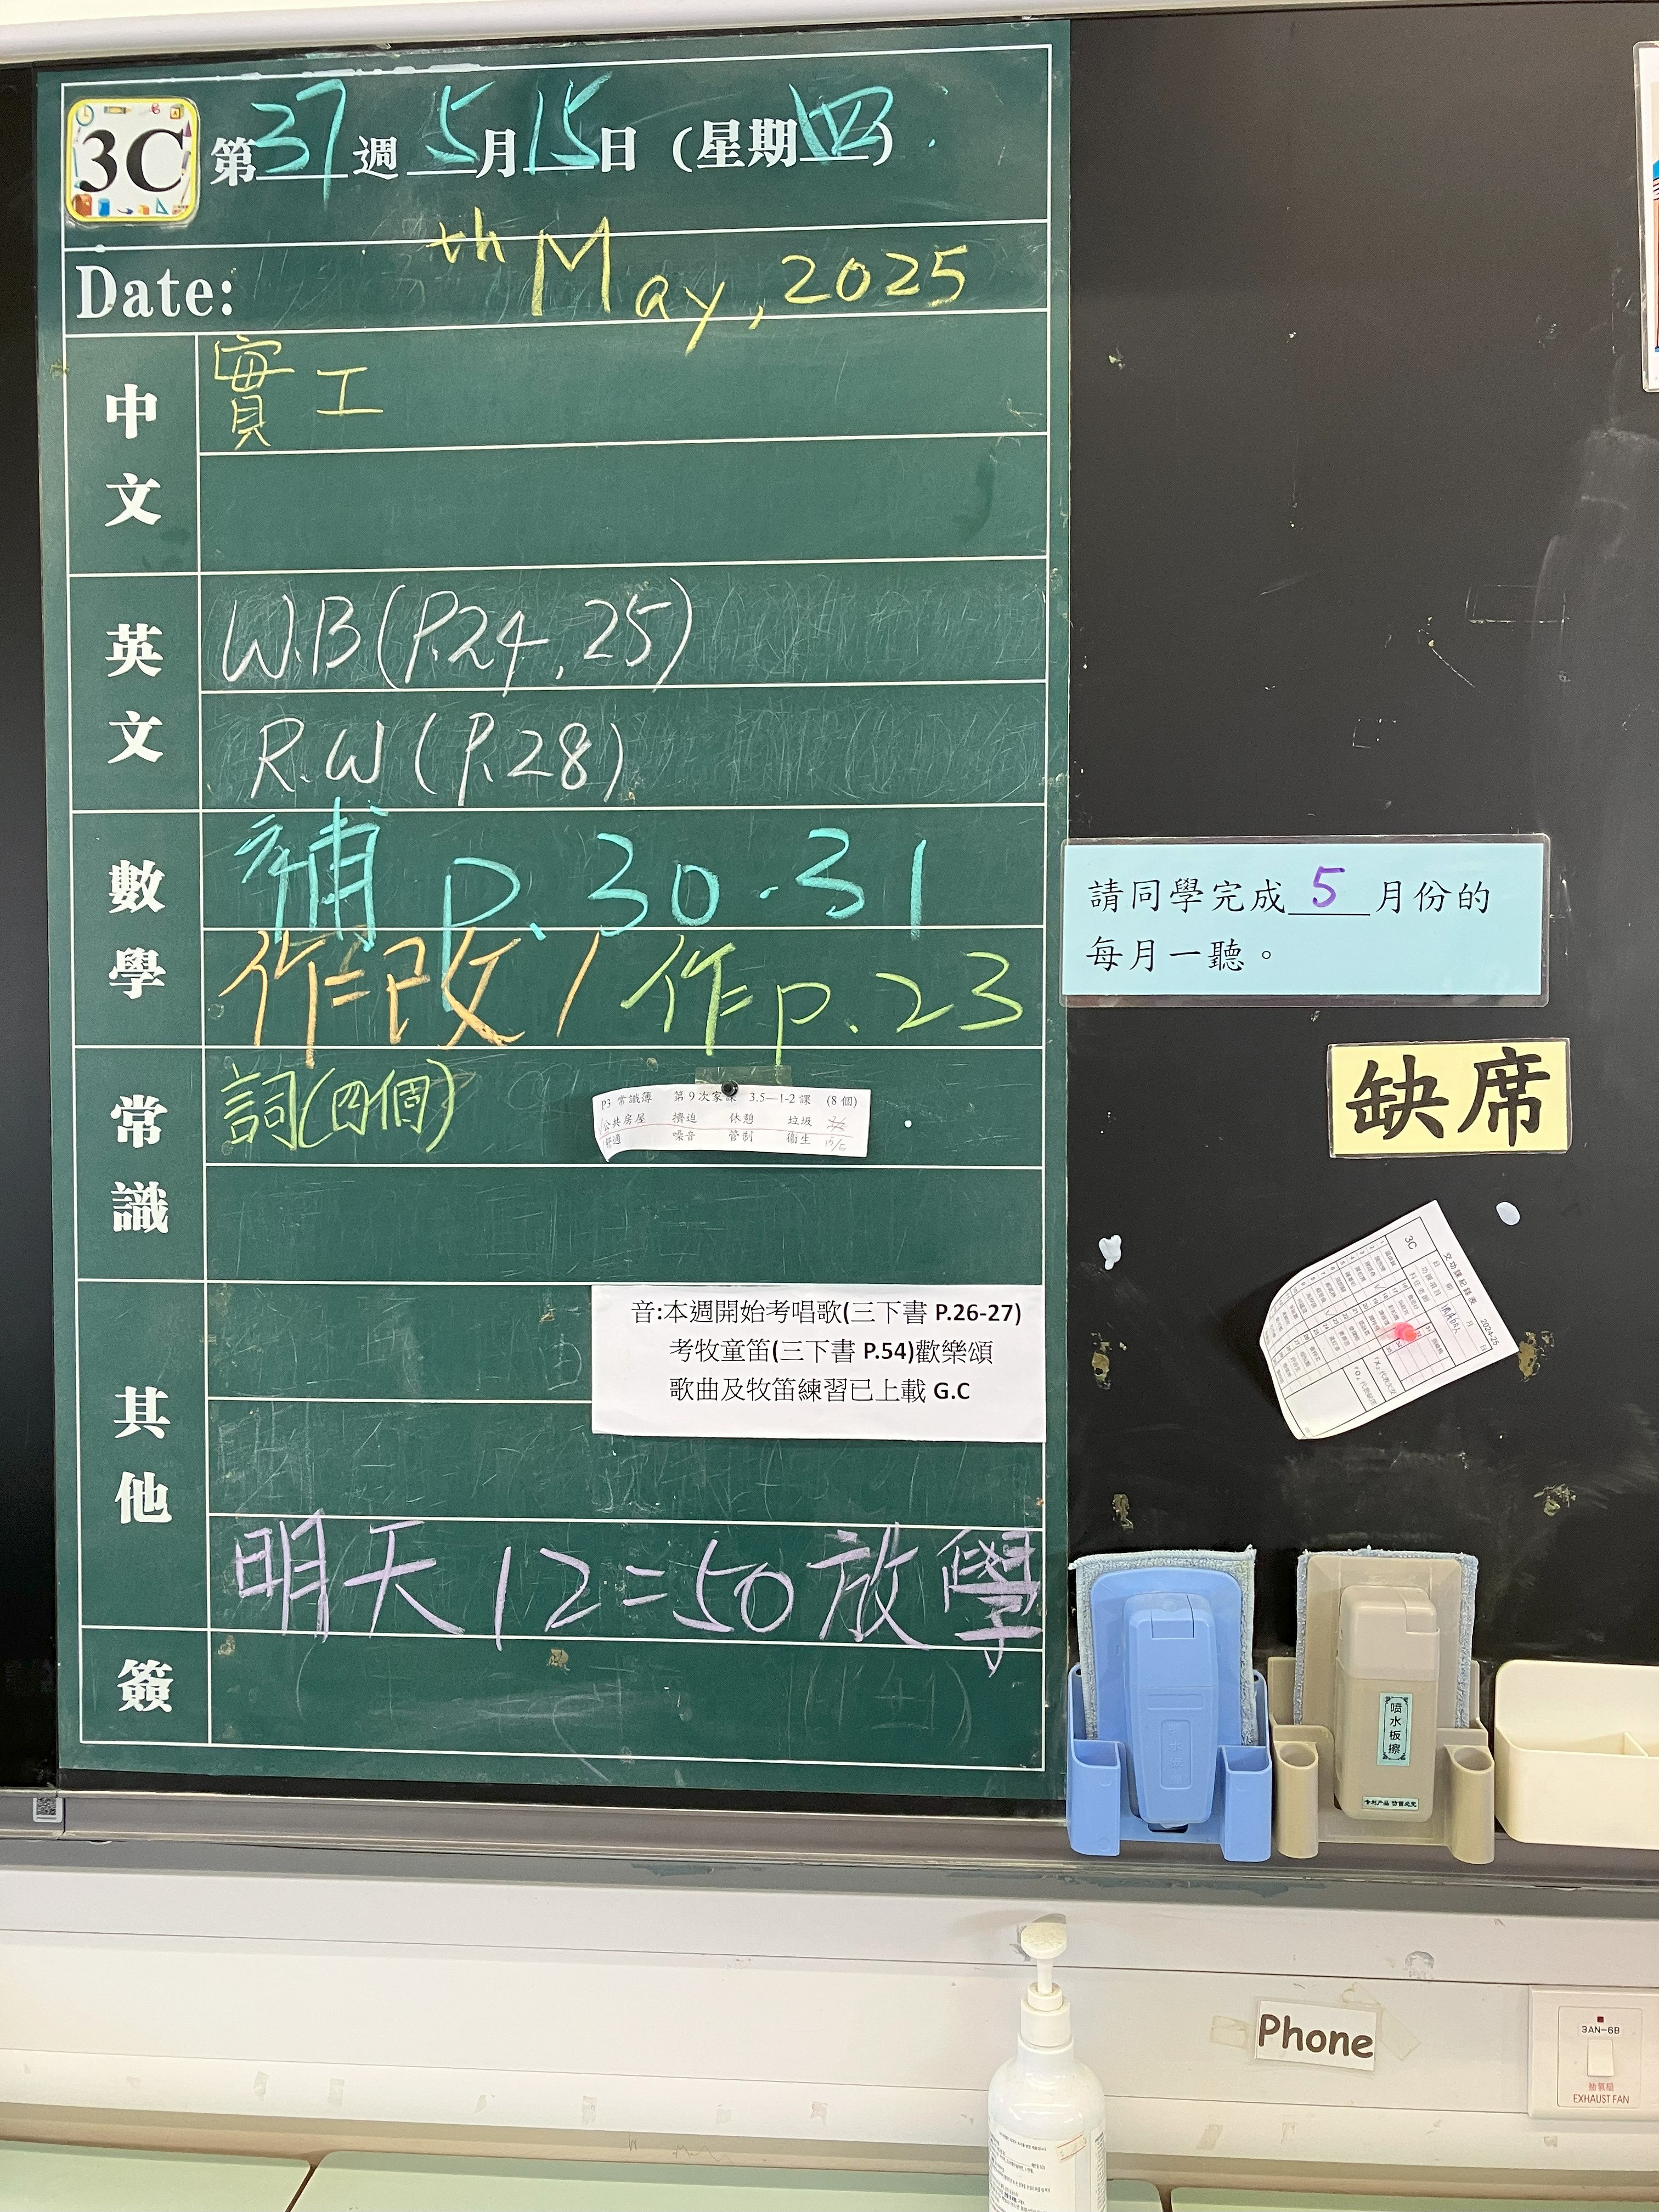 3C 第37週 5月15日 (星期四)
Date: th May, 2025
中文
實工
英文
W.B(P.24, 25)
R.W(P.28)
數學
補 P.30.31
作=改 / 作 p.23
常識
詞(四個)
P3 常識薄 第9次家課 3.5—1-2課 (8個)
公共房屋 擠迫 休憩 垃圾
舒適 噪音 管制 衞生 15/5
其他
音:本週開始考唱歌(三下書 P.26-27)
考牧童笛(三下書 P.54)歡樂頌
歌曲及牧笛練習已上載 G.C
明天12=50放學
簽
請同學完成 5 月份的
每月一聽。
缺席
交功課紀錄表
2024-25
3C
喷水板擦
专利产品 仿冒必究
Phone
3AN-6B
抽氣扇
EXHAUST FAN